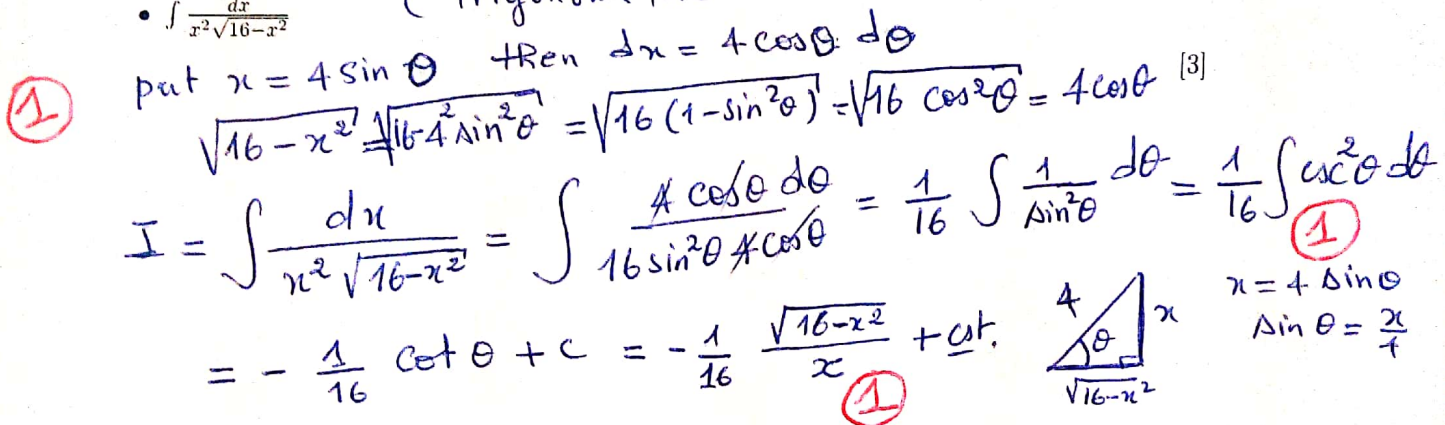 • ∫ dx / (x²√(16−x²)) (
① put x = 4 sin θ then dx = 4 cos θ dθ
√(16 − x²) = √(16 − 4² sin²θ) = √(16 (1 − sin²θ)) = √(16 cos²θ) = 4 cos θ [3]
I = ∫ dx / (x² √(16−x²)) = ∫ 4 cos θ dθ / (16 sin²θ 4 cos θ) = 1/16 ∫ 1/sin²θ dθ = 1/16 ∫ csc²θ dθ ①
= − 1/16 cot θ + c = − 1/16 √(16−x²) / x + cst. ①
4 x θ √(16−x²)
x = 4 sin θ
sin θ = x/4